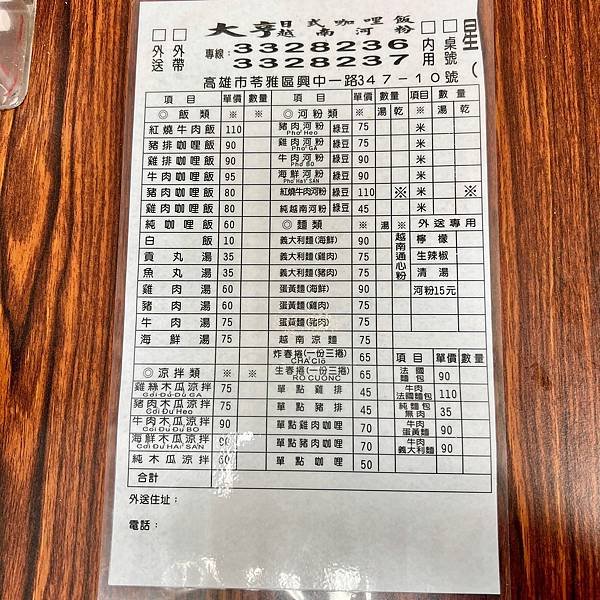 大亨 日式咖哩飯 越南河粉
□外送 □外帶
專線:3328236
3328237
□內用 □桌號
高雄市苓雅區興中一路347-10號
項目 單價 數量 項目 單價 數量 項目 數量
◎飯類 ◎河粉類 ※ 湯 乾 ※ 湯 乾
紅燒牛肉飯 110 豬肉河粉 Pho Heo 綠豆 75 米
豬排咖哩飯 90 雞肉河粉 Pho GA 綠豆 75 米
雞排咖哩飯 90 牛肉河粉 Pho BO 綠豆 90 米
牛肉咖哩飯 95 海鮮河粉 Pho Hai SAN 綠豆 75 米
豬肉咖哩飯 80 紅燒牛肉河粉 綠豆 110 ※ 米 ※
雞肉咖哩飯 80 純越南河粉 綠豆 45 米
純咖哩飯 60 ◎麵類 ※ 湯 ※ 外送專用
白飯 10 義大利麵(海鮮) 90 越南通心粉 檸檬
貢丸湯 35 義大利麵(雞肉) 75 生辣椒
魚丸湯 35 義大利麵(豬肉) 75 清湯
雞肉湯 60 蛋黃麵(海鮮) 90 河粉15元
豬肉湯 60 蛋黃麵(雞肉) 75
牛肉湯 75 蛋黃麵(豬肉) 75
海鮮湯 75 越南涼麵 75
炸春捲(一份三捲) CHA GIO 65 項目 單價 數量
◎涼拌類 ※ ※ 生春捲(一份三捲) RO CUONG 65 法國麵包 90
雞絲木瓜涼拌 Goi Du Du GA 75 單點雞排 45 牛肉法國麵包 110
豬肉木瓜涼拌 Goi Du Heo 75 單點豬排 45 純麵包無肉 35
牛肉木瓜涼拌 Goi Du Du BO 90 單點雞肉咖哩 70 牛肉蛋黃麵 90
海鮮木瓜涼拌 Goi Du HAI SAN 90 單點豬肉咖哩 70 牛肉義大利麵 90
純木瓜涼拌 60 單點咖哩 50
合計
外送住址:
電話: